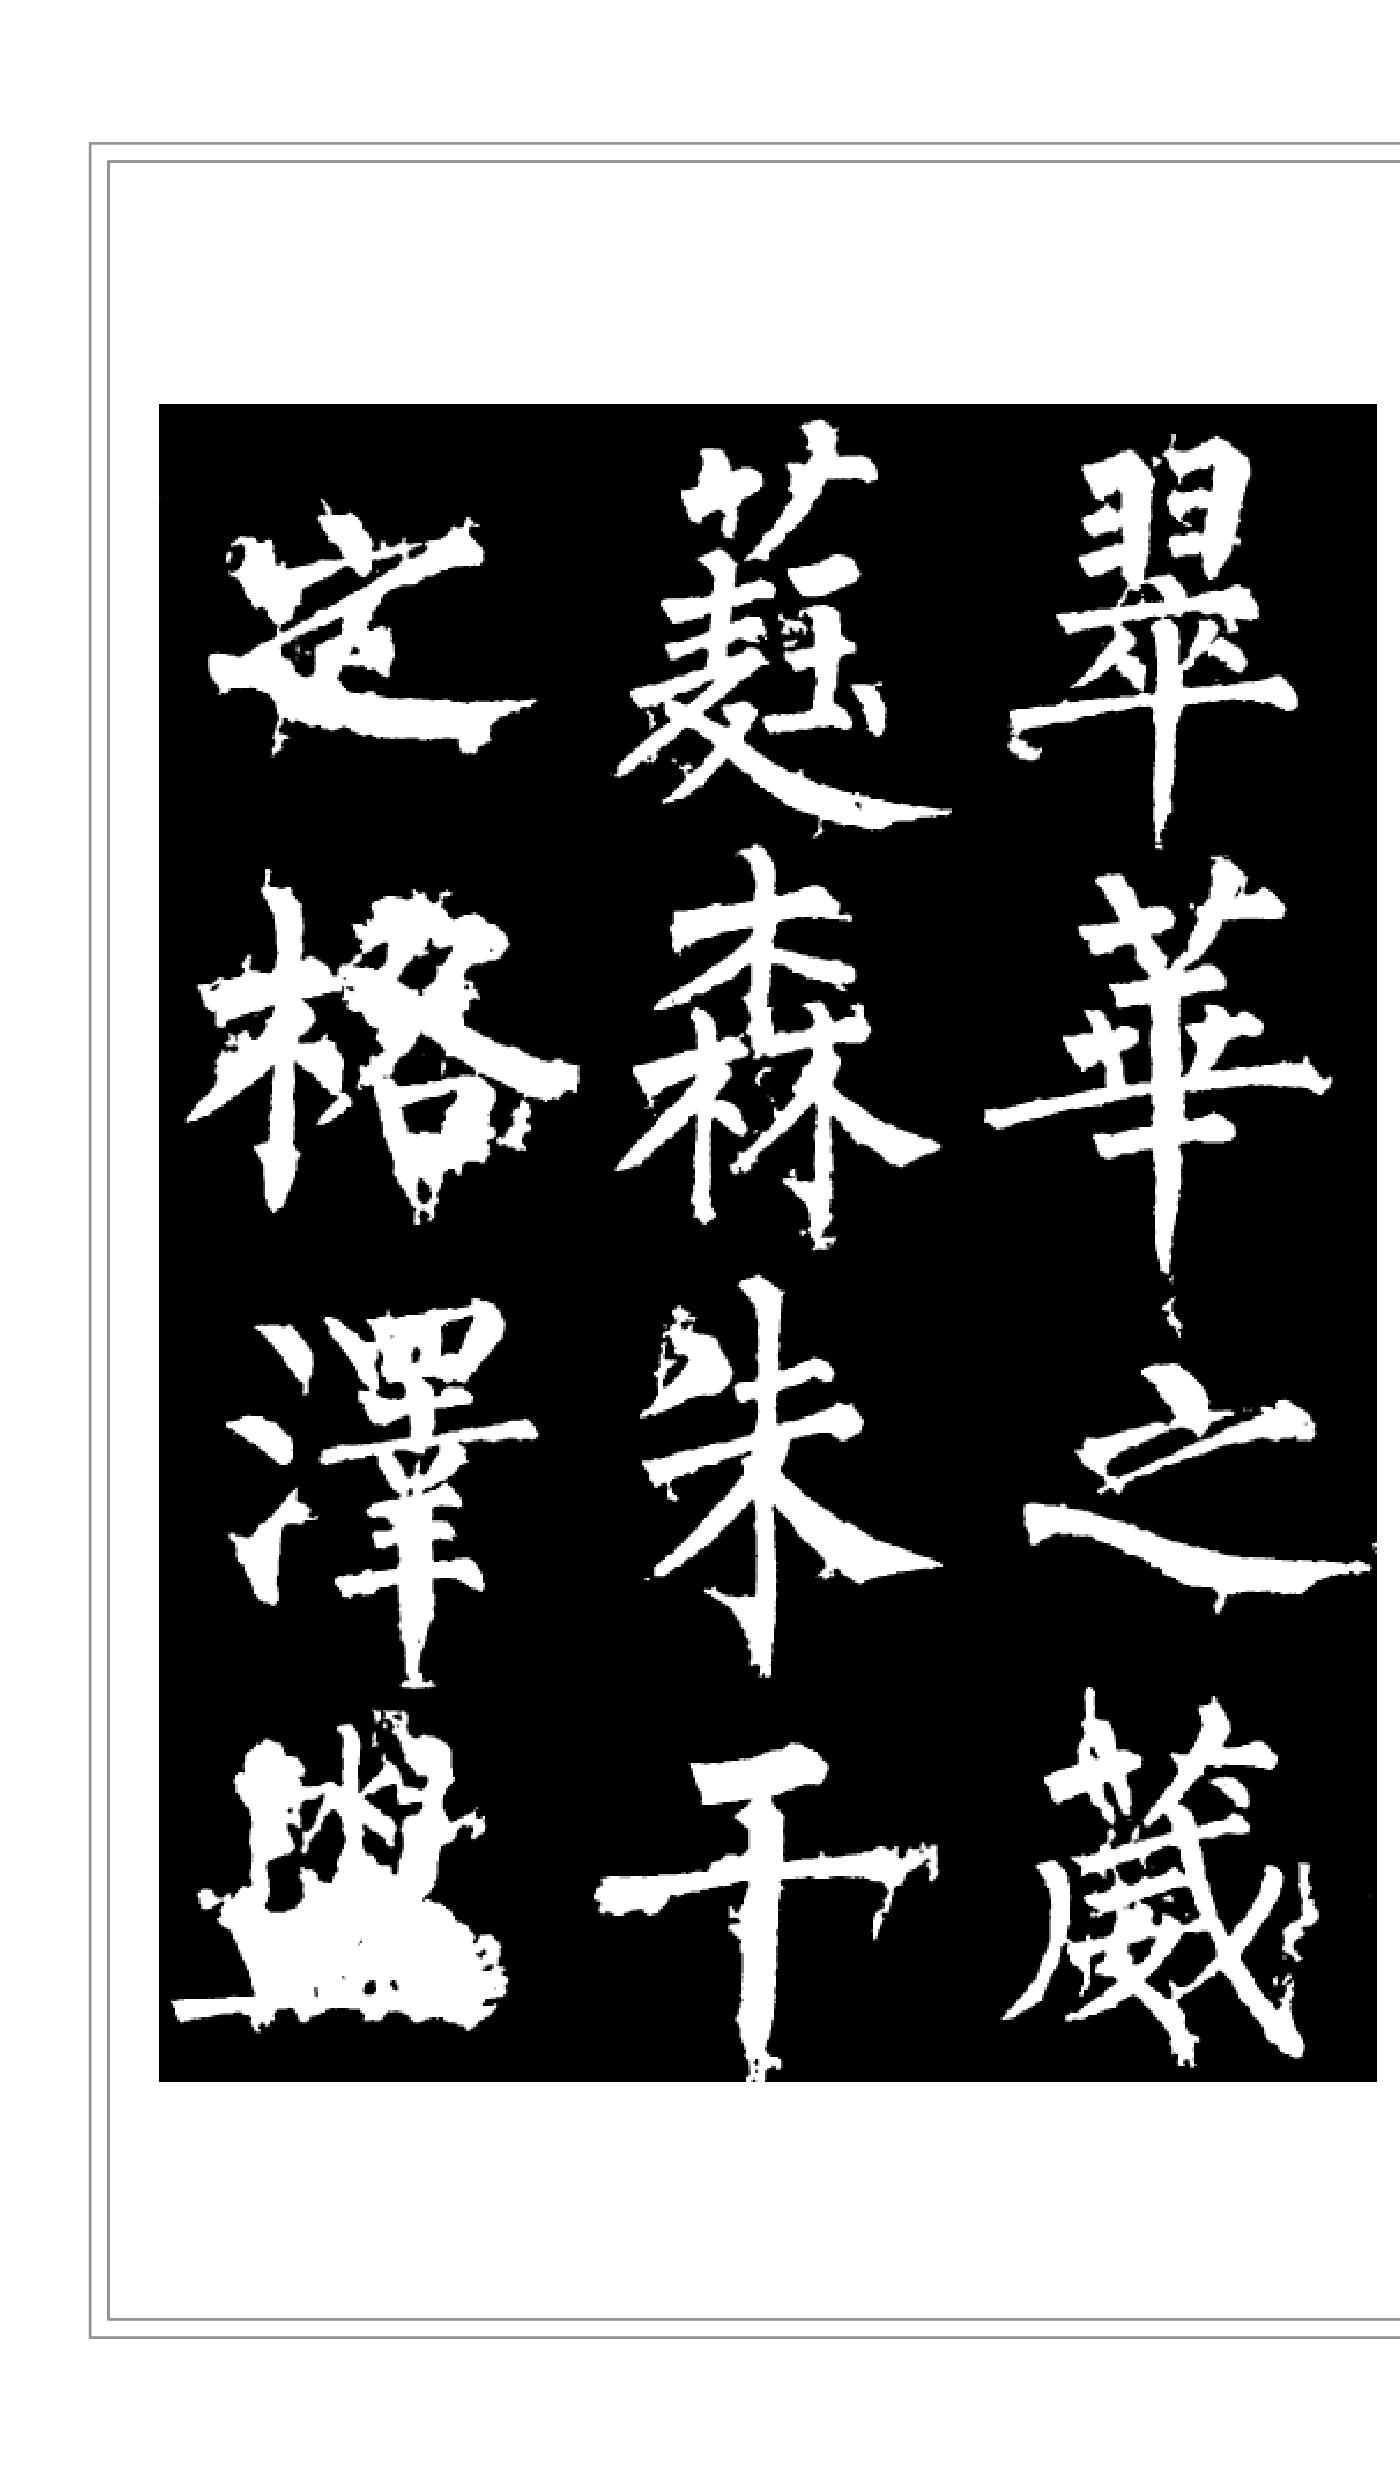 翠華之葳
蕤森朱干
之格澤